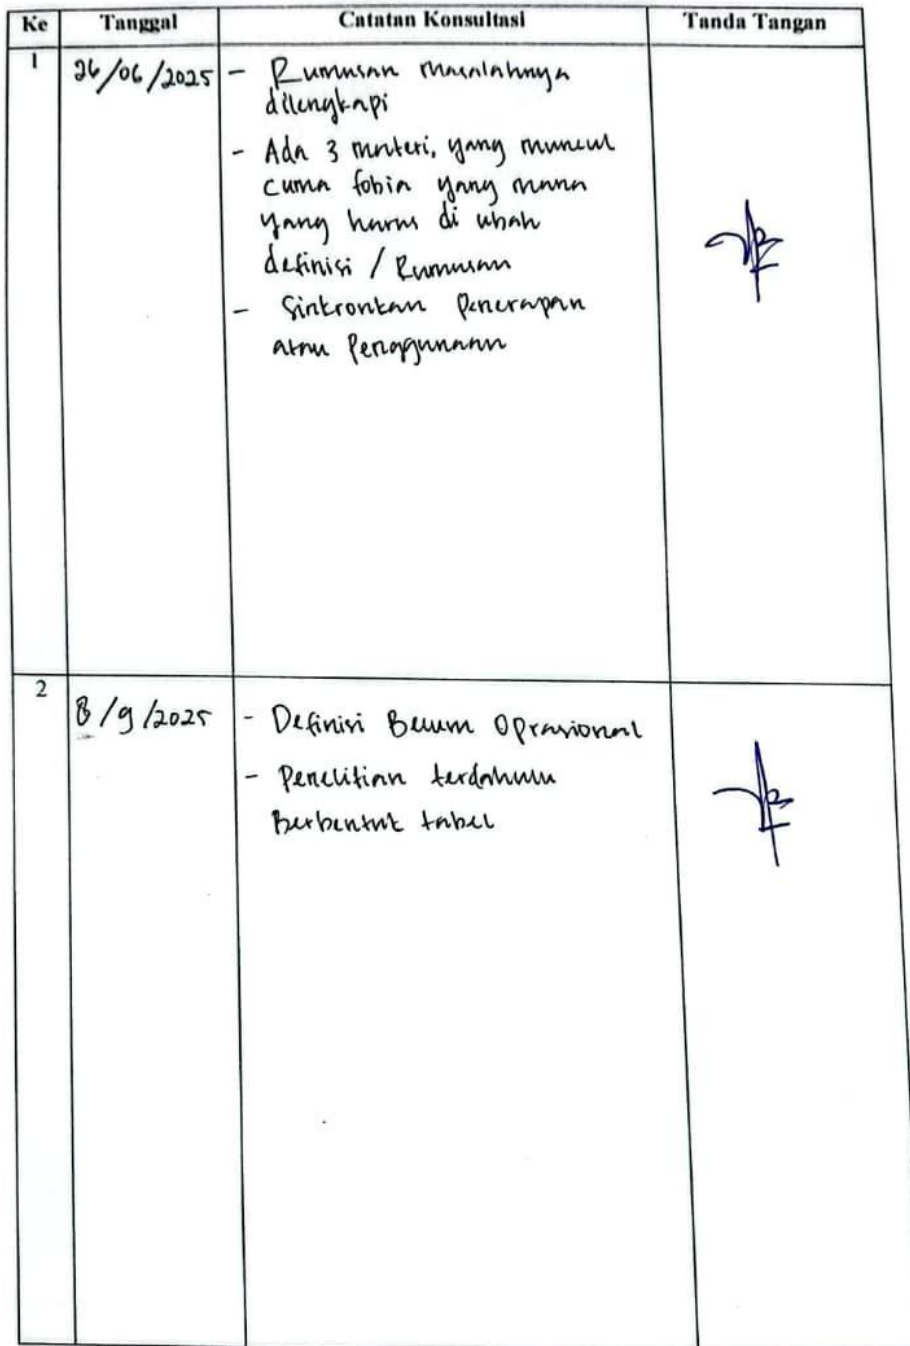 Ke Tanggal Catatan Konsultasi Tanda Tangan
1 26/06/2025 - Rumusan masalahnya
dilengkapi
- Ada 3 materi, yang muncul
cuma fobia yang mana
yang harus di ubah
definisi / Rumusan
- Sinkronkan Penerapan
atau Penggunaan
2 8/9/2025 - Definisi Belum Oprasional
- Penelitian terdahulu
Berbentuk tabel